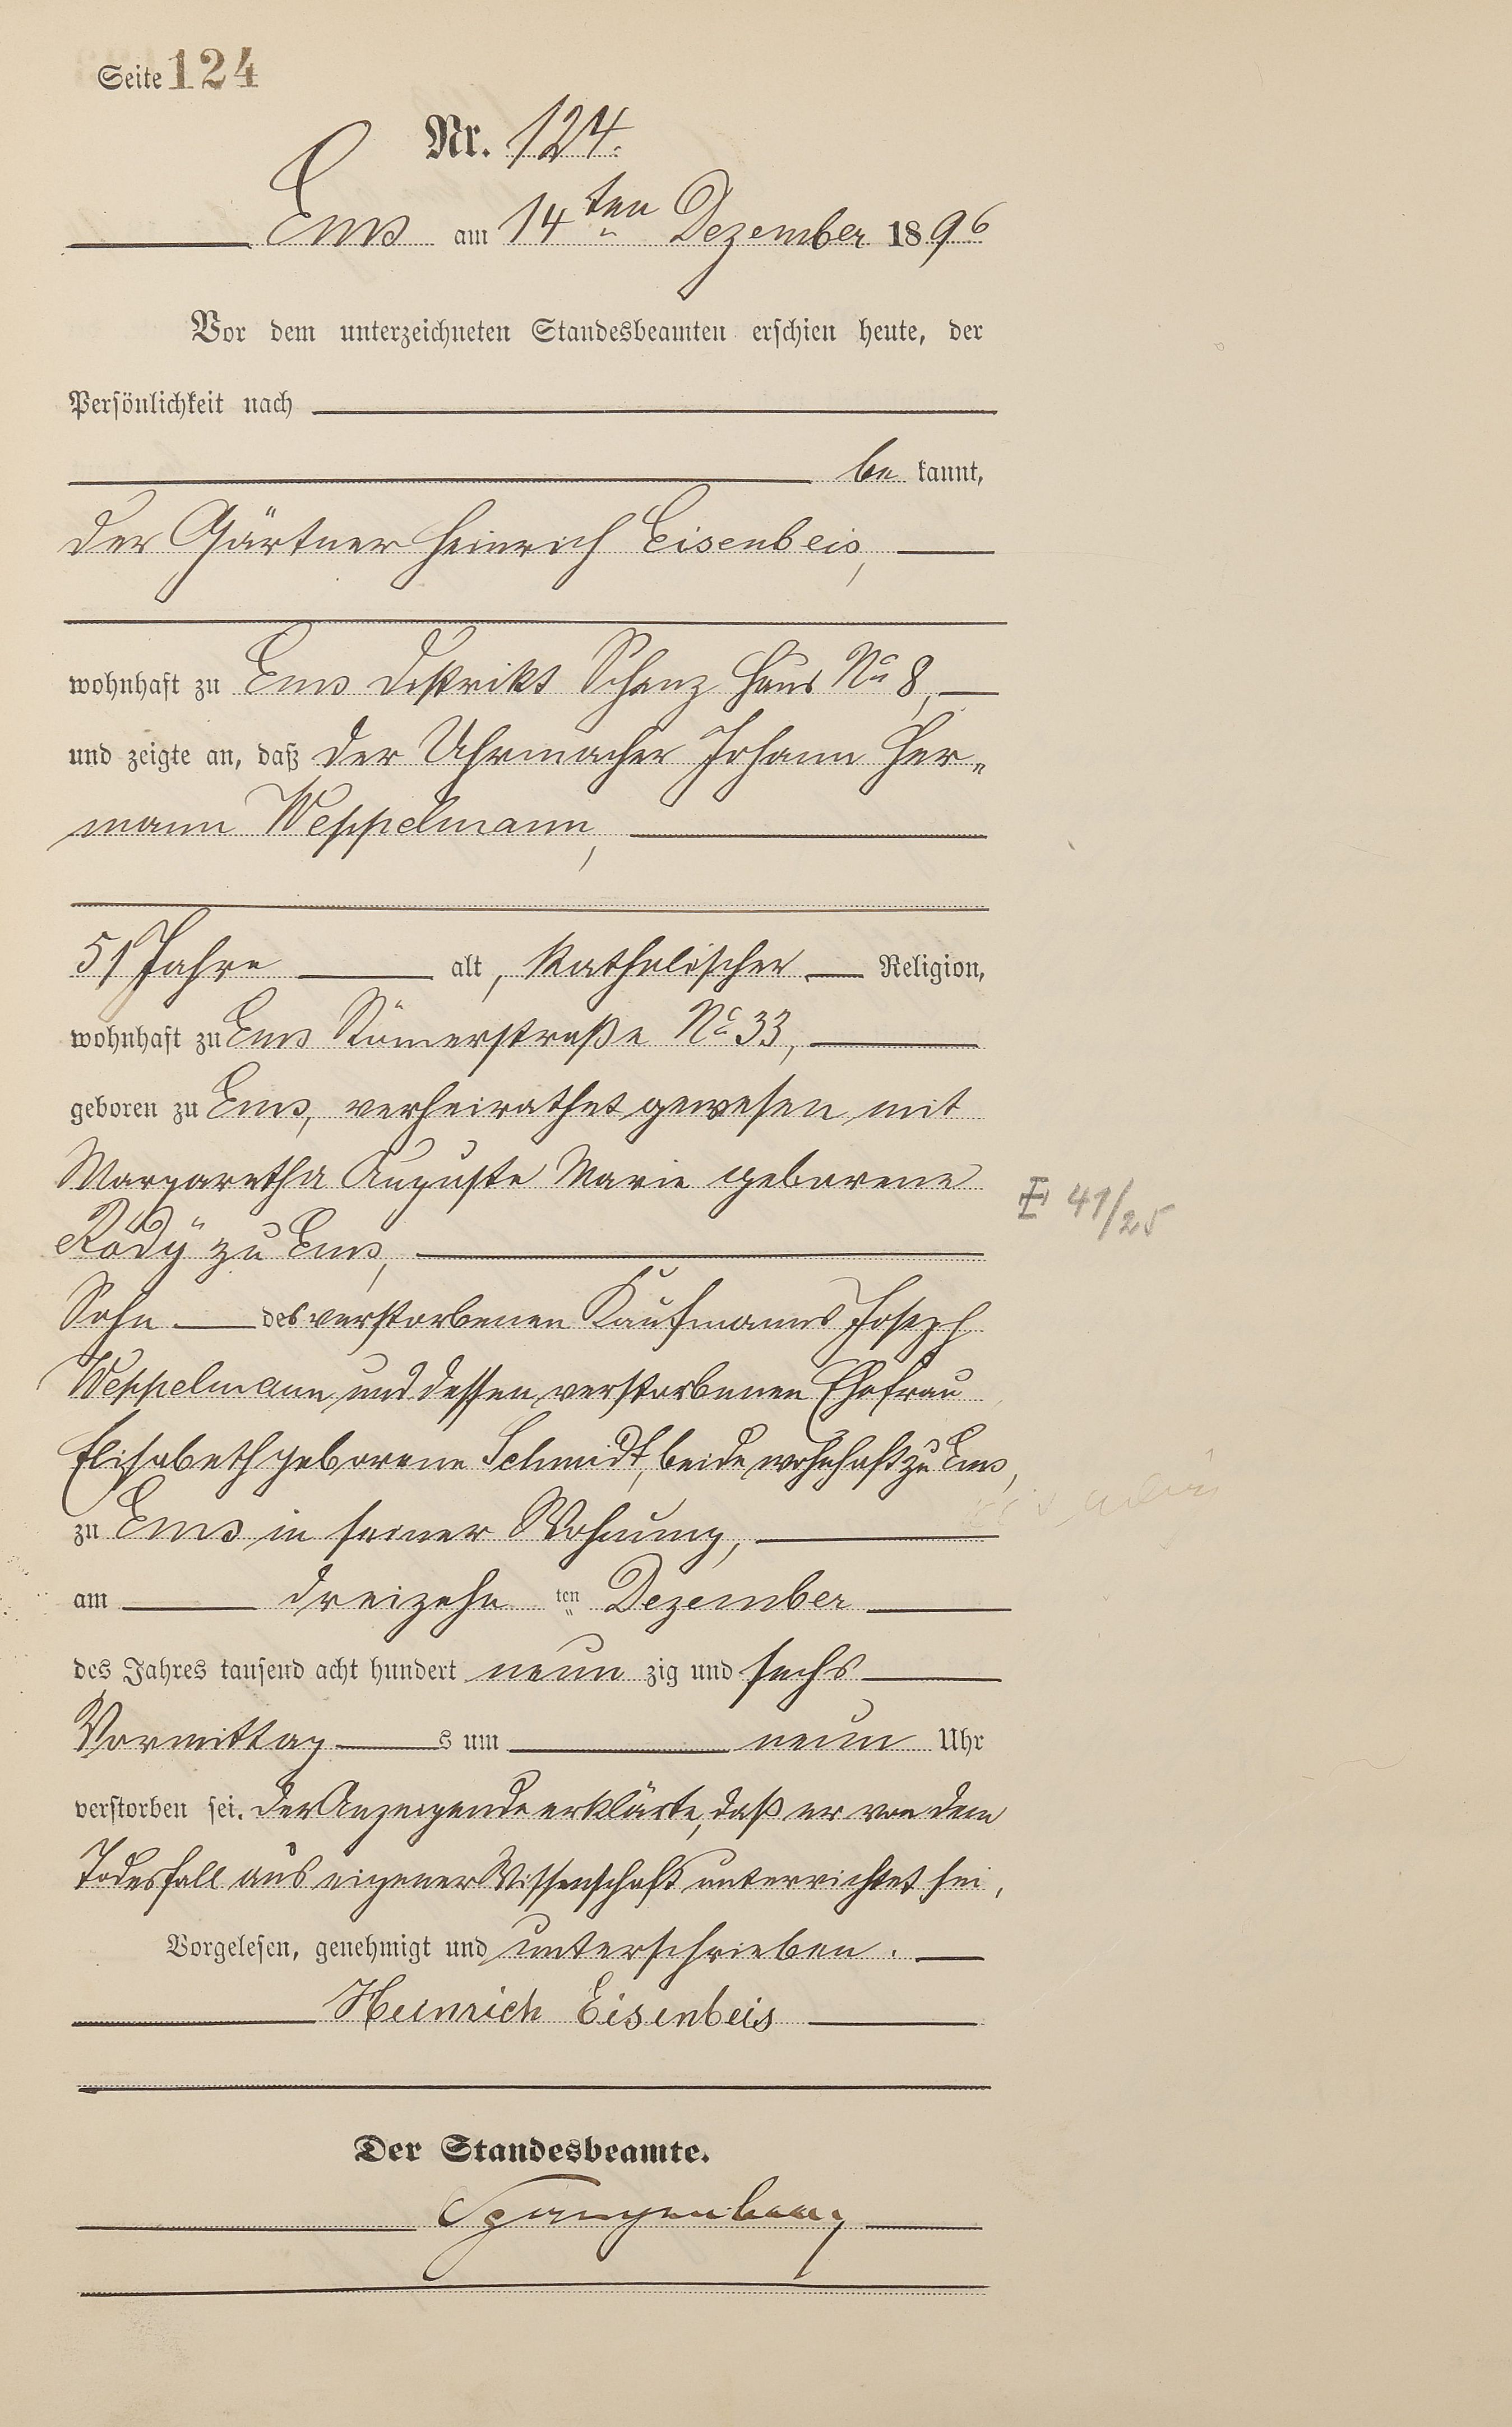 Seite 124
Nr. 124.
Ems am 14ten Dezember 1896
Vor dem unterzeichneten Standesbeamten erschien heute, der
Persönlichkeit nach
be kannt,
der Gärtner Heinrich Eisenbeis,
wohnhaft zu Ems Distrikt Schanz Haus No 8,
und zeigte an, daß der Uhrmacher Johann Her-
mann Weppelmann,
51 Jahre alt, katholischer Religion,
wohnhaft zu Ems Römerstraße No 33,
geboren zu Ems, verheirathet gewesen mit
Margaretha Auguste Marie geborene
Rödÿ zu Ems,
E 41/25
Sohn des verstorbenen Kaufmanns Joseph
Weppelmann und dessen verstorbenen Ehefrau
Elisabeth geborene Schmidt, beide wohnhaft zu Ems,
zu Ems in seiner Wohnung,
am dreizehn ten Dezember
des Jahres tausend acht hundert neun zig und sechs
Vormittag s um neun Uhr
verstorben sei. Der Anzeigende erklärte, daß er von dem
Todesfall aus eigener Wissenschaft unterrichtet sei,
Vorgelesen, genehmigt und unterschrieben.
Heinrich Eisenbeis
Der Standesbeamte.
Spangenberg